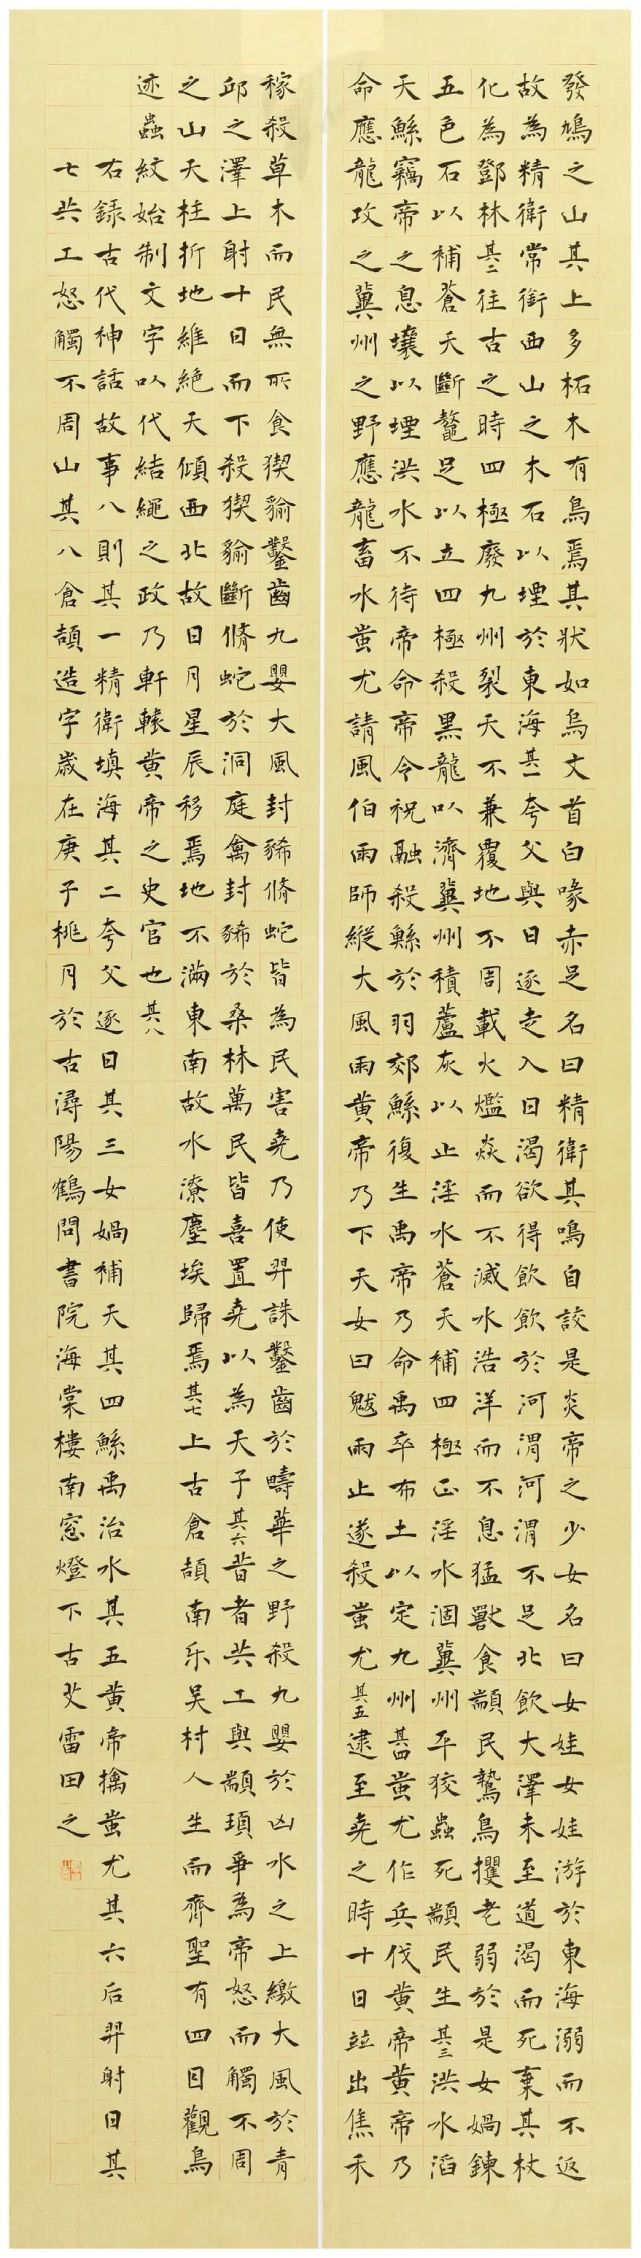 發鳩之山其上多柘木有鳥焉其狀如烏文首白喙赤足名曰精衛其鳴自詨是炎帝之少女名曰女娃女娃游於東海溺而不返
故為精衛常銜西山之木石以堙於東海其一夸父與日逐走入日渴欲得飲飲於河渭河渭不足北飲大澤未至道渴而死棄其杖
化為鄧林其二往古之時四極廢九州裂天不兼覆地不周載火爁焱而不滅水浩洋而不息猛獸食顓民鷙鳥攫老弱於是女媧鍊
五色石以補蒼天斷鼇足以立四極殺黑龍以濟冀州積蘆灰以止淫水蒼天補四極正淫水涸冀州平狡蟲死顓民生其三洪水滔
天鯀竊帝之息壤以堙洪水不待帝命帝令祝融殺鯀於羽郊鯀復生禹帝乃命禹卒布土以定九州其四蚩尤作兵伐黃帝黃帝乃
命應龍攻之冀州之野應龍畜水蚩尤請風伯雨師縱大風雨黃帝乃下天女曰魃雨止遂殺蚩尤其五逮至堯之時十日竝出焦禾
稼殺草木而民無所食猰貐鑿齒九嬰大風封豨脩蛇皆為民害堯乃使羿誅鑿齒於疇華之野殺九嬰於凶水之上繳大風於青
邱之澤上射十日而下殺猰貐斷脩蛇於洞庭禽封豨於桑林萬民皆喜置堯以為天子其六昔者共工與顓頊爭為帝怒而觸不周
之山天柱折地維絕天傾西北故日月星辰移焉地不滿東南故水潦塵埃歸焉其七上古倉頡南乐吴村人生而齊聖有四目觀鳥
迹蟲紋始制文字以代結繩之政乃軒轅黃帝之史官也其八
右錄古代神話故事八則其一精衛填海其二夸父逐日其三女媧補天其四鯀禹治水其五黃帝擒蚩尤其六后羿射日其
七共工怒觸不周山其八倉頡造字歲在庚子桃月於古潯陽鶴問書院海棠樓南窓燈下古艾雷田之